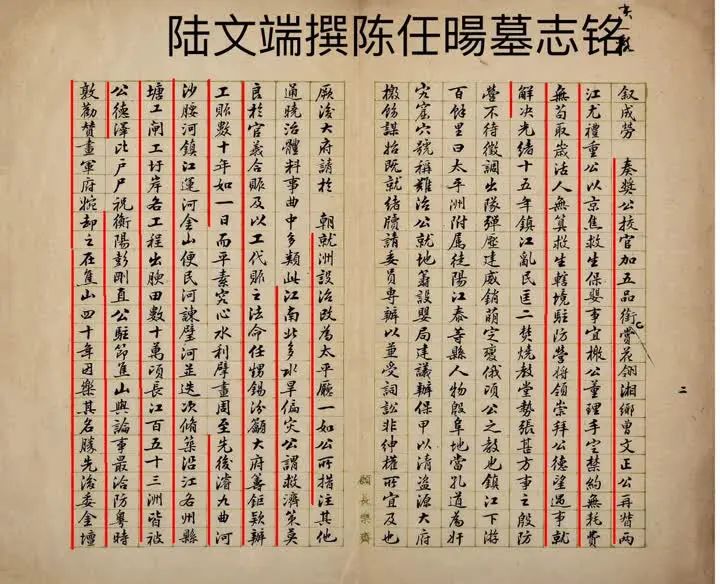 陆文端撰陈任暘墓志铭
叙成勞 奏奬公授官加五品銜賞花翎湘鄉曾文正公再督兩
江尤禮重公以京焦救生保嬰事宜檄公董理手定禁約無耗費
無苟取歲活人無算救生轄境駐防營將領崇拜公德望遇事就
解决光緒十五年鎮江亂民匡二焚燒教堂勢張甚方事之殷防
營不待徵調出隊彈壓建威銷萌定變俄頃公之教也鎮江下游
百餘里曰太平洲附屬徒陽江泰等縣人物殷阜地當孔道為奸
宄窟穴號稱難治公就地籌設嬰局建議辦保甲以清盜源大府
撥餉謀始既就緒牘請委員專辦以兼受詞訟非紳權所宜及也
二
長樂齋
厥後大府請於 朝就洲設治改為太平廳一如公所措注其他
通曉治體料事曲中多類此江南北多水旱偏灾公謂救濟策莫
良於官義合賑及以工代賑之法命任甥錫汾籲大府籌鉅款辦
工賑數十年如一日而平素究心水利擘畫周至先後濬九曲河
沙腰河鎮江運河金山便民河諫壁河並迭次脩築沿江各州縣
塘工閘工圩岸各工程出腴田數十萬頃長江百五十三洲皆被
公德澤比户尸祝衡陽彭剛直公駐節焦山與論事最洽防粤時
敦勸贊畫軍府婉却之在焦山四十年因樂其名勝先後委金壇